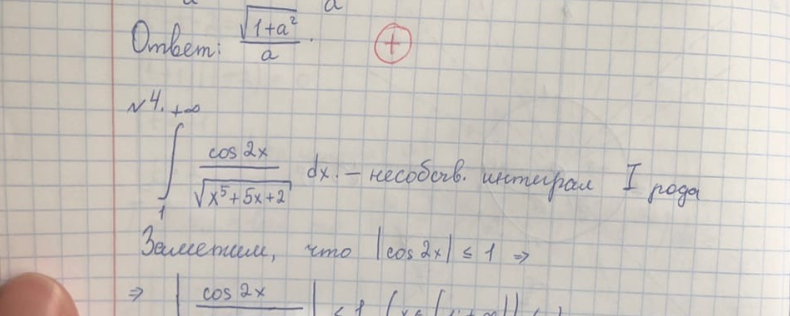 Ответ: √(1+a²)/a. +
№4.
∫₁^{+∞} cos 2x / √(x⁵+5x+2) dx. – несобств. интеграл I рода
Заметим, что |cos 2x| ≤ 1 ⇒
⇒ | cos 2x